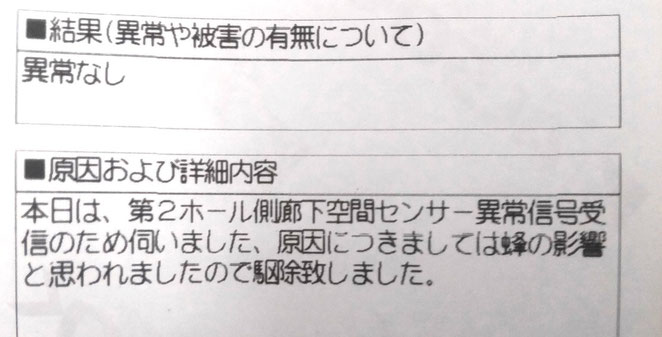 ■結果(異常や被害の有無について)
異常なし
■原因および詳細内容
本日は、第２ホール側廊下空間センサー異常信号受
信のため伺いました、原因につきましては蜂の影響
と思われましたので駆除致しました。